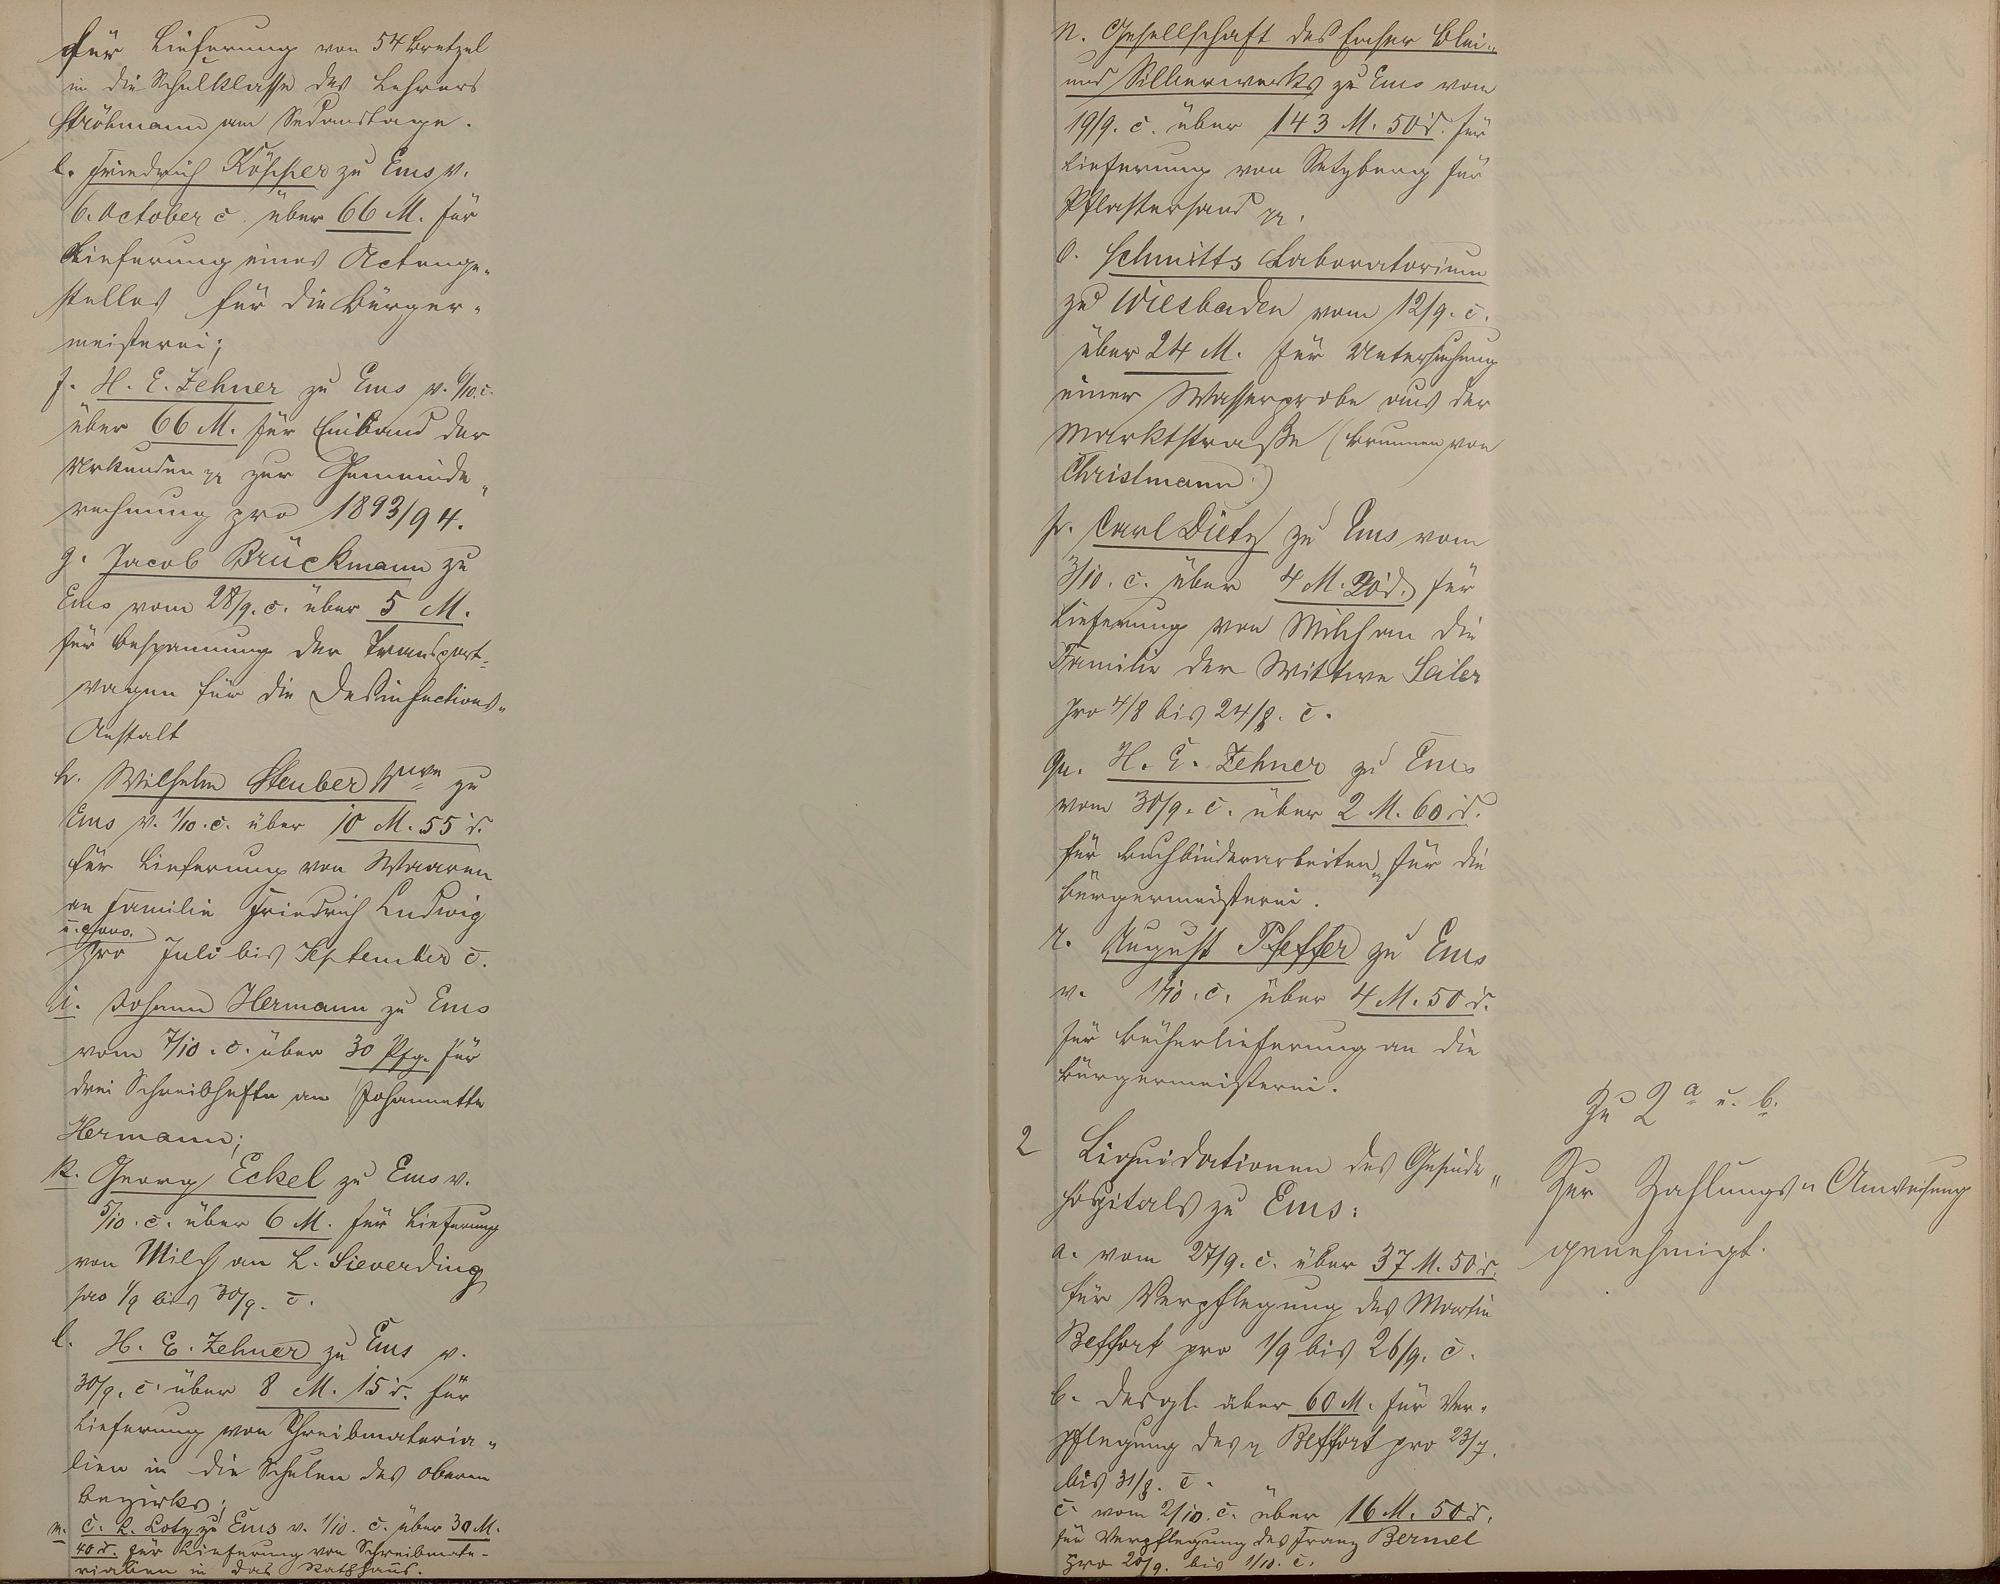 für Lieferung von 54 Bretzel
in die Schulklasse des Lehrers
Ströhmann am Sedanstage.
e. Friedrich Köpper zu Ems v.
6. October c. über 66 M. für
Lieferung eines Actenge-
stelles für die Bürger-
meisterei;
f. H. E. Zehner zu Ems v. 6/10. c.
über 66 M. für Einband der
Urkunden pp zur Gemeinde-
rechnung pro 1893/94.
g. Jacob Brückmann zu
Ems vom 28/9. c. über 5 M.
für Bespannung der Transport-
wagen für die Desinfections-
Anstalt
h. Wilhelm Steuber Wwe zu
Ems v. 1/10. c. über 10 M. 55 d.
für Lieferung von Waaren
an Familie Friedrich Ludwig
pro Juli bis September c.
i. Johann Hermann zu Ems
vom 7/10. c. über 30 Pfg. für
drei Schreibhefte an Johannette
Hermann;
k. Georg Eckel zu Ems v.
5/10. c. über 6 M. für Lieferung
von Milch an L. Sieverding
pro 1/9 bis 30/9. c.
l. H. E. Zehner zu Ems v.
30/9. c. über 8 M. 15 d. für
Lieferung von Schreibmateria-
lien in die Schulen des oberen
Bezirks;
m. C. L. Lotz zu Ems v. 1/10. c. über 30 M.
40 d. für Lieferung von Schreibmate-
rialien in das Rathhaus.
n. Gesellschaft des Emser Blei-
und Silberwerks zu Ems vom
19/9. c. über 143 M. 50 d. für
Lieferung von Setzberg für
Pflastersand pp.
o. Schmitts Laboratorium
zu Wiesbaden vom 12/9. c.
über 24 M. für Untersuchung
einer Wasserprobe aus der
Marktstraße (Brunnen von
Christmann)
p. Carl Dietz zu Ems vom
3/10. c. über 4 M. 20 d. für
Lieferung von Milch an die
Familie der Wittwe Seiler
pro 4/8 bis 24/8. c.
qu. H. E. Zehner zu Ems
vom 30/9. c. über 2 M. 60 d.
für Buchbinderarbeiten für die
Bürgermeisterei.
r. August Pfeffer zu Ems
v. 1/10. c. über 4 M. 50 d.
für Bücherlieferung an die
Bürgermeisterei.
2 Liquidationen des Gesinde-
hospitals zu Ems:
a. vom 27/9. c. über 37 M. 50 d.
für Verpflegung des Martin
Beffort pro 1/9 bis 26/9. c.
b. desgl. über 60 M. für Ver-
pflegung des pp Beffort pro 23/7.
bis 31/8. c.
c. vom 2/10. c. über 16 M. 50 d.
für Verpflegung des Franz Bermel
pro 20/9. bis 1/10. c.
Zu 2 a u. b.
Zur Zahlungs-Anweisung
genehmigt.